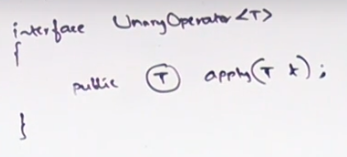 interface UnaryOperator<T>
{
public T apply(T x);
}